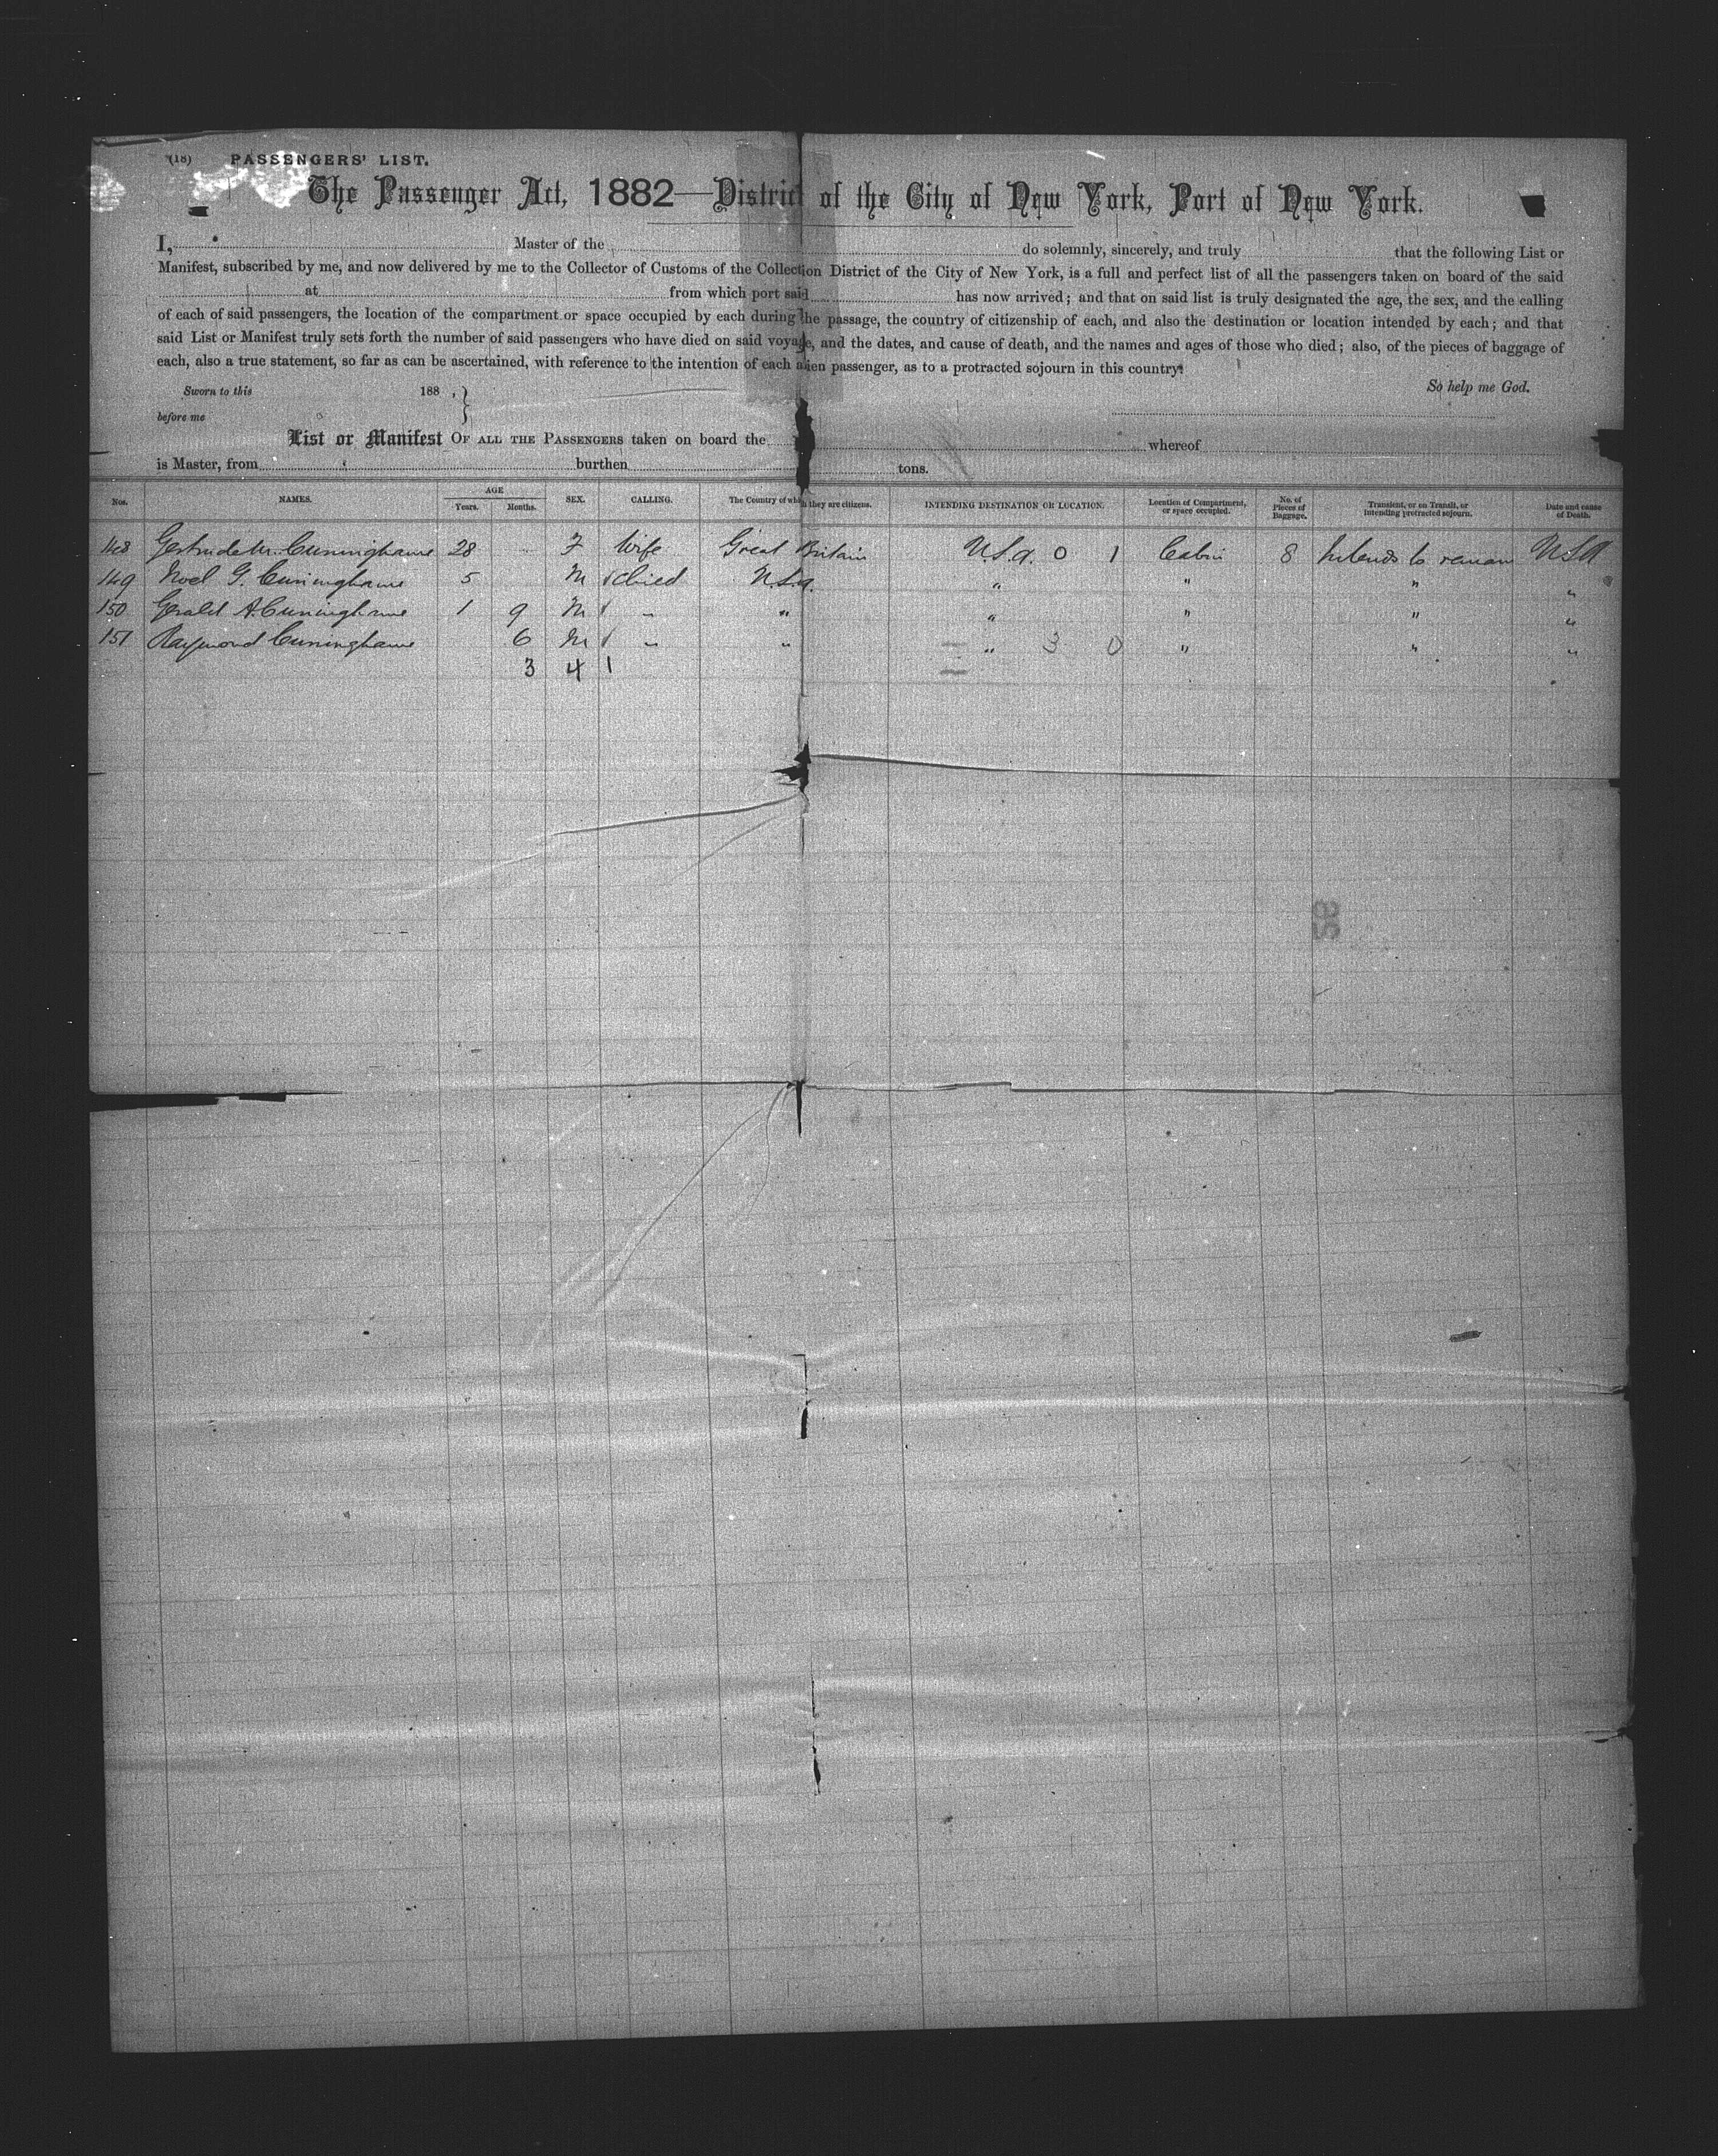 (18) PASSENGERS' LIST.
The Passenger Act, 1882—District of the City of New York, Port of New York.
I, Master of the do solemnly, sincerely, and truly that the following List or
Manifest, subscribed by me, and now delivered by me to the Collector of Customs of the Collection District of the City of New York, is a full and perfect list of all the passengers taken on board of the said
at from which port said has now arrived; and that on said list is truly designated the age, the sex, and the calling
of each of said passengers, the location of the compartment or space occupied by each during the passage, the country of citizenship of each, and also the destination or location intended by each; and that
said List or Manifest truly sets forth the number of said passengers who have died on said voyage, and the dates, and cause of death, and the names and ages of those who died; also, of the pieces of baggage of
each, also a true statement, so far as can be ascertained, with reference to the intention of each alien passenger, as to a protracted sojourn in this country.
Sworn to this 188 , } So help me God.
before me
List or Manifest OF ALL THE PASSENGERS taken on board the whereof
is Master, from burthen tons.
Nos. NAMES. AGE Years. Months. SEX. CALLING. The Country of which they are citizens. INTENDING DESTINATION OR LOCATION. Location of Compartment, or space occupied. No. of Pieces of Baggage. Transient, or on Transit, or intending protracted sojourn. Date and cause of Death.
148 Gertrude M. Cuninghame 28 F Wife Great Britain U.S.A. 0 1 Cabin 8 Intends to remain U.S.A
149 Noel G. Cuninghame 5 M Child U.S.A. " " " "
150 Gerald A. Cuninghame 1 9 M " " " " " "
151 Raymond Cuninghame 6 M " " " 3 0 " " "
3 4 1
38